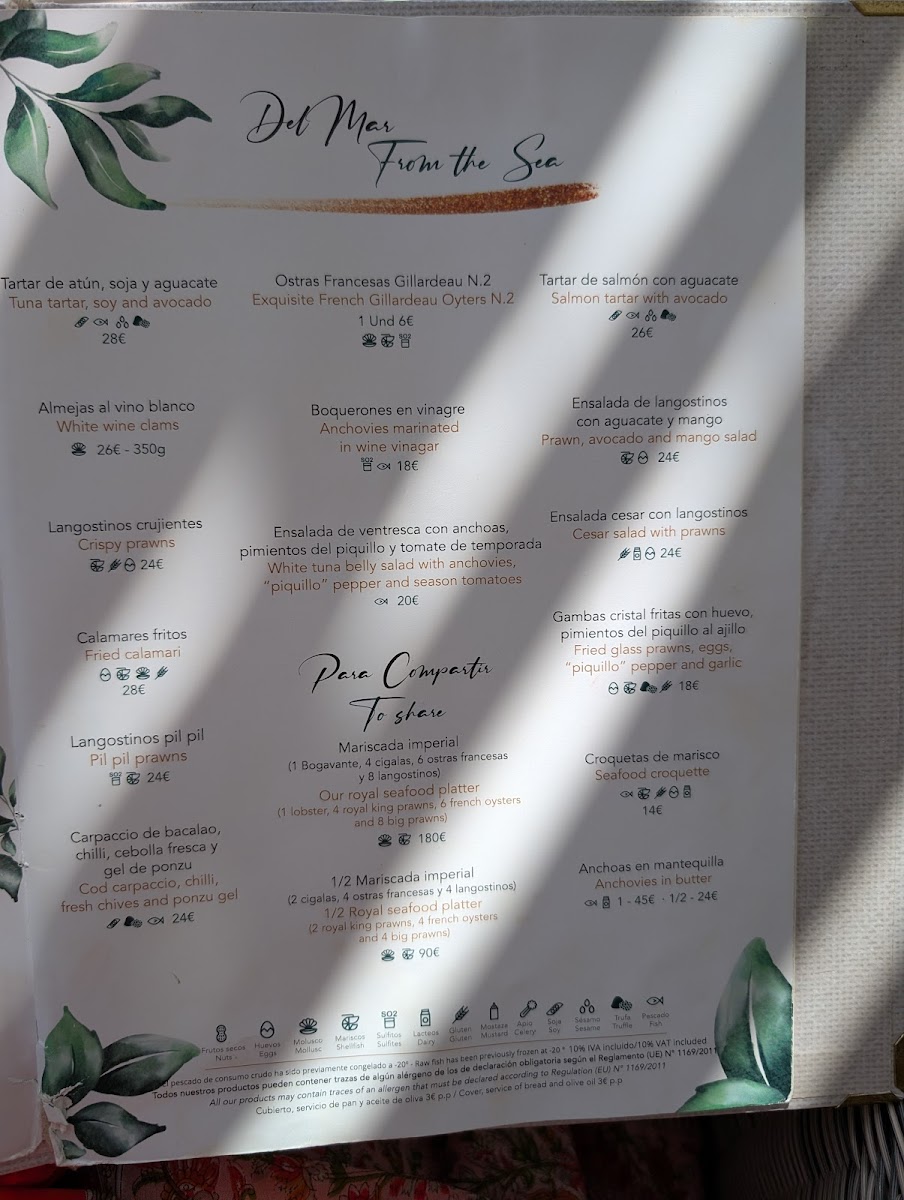 Del Mar
From the Sea
Tartar de atún, soja y aguacate
Tuna tartar, soy and avocado
28€
Almejas al vino blanco
White wine clams
26€ - 350g
Langostinos crujientes
Crispy prawns
24€
Calamares fritos
Fried calamari
28€
Langostinos pil pil
Pil pil prawns
SO2 24€
Carpaccio de bacalao,
chilli, cebolla fresca y
gel de ponzu
Cod carpaccio, chilli,
fresh chives and ponzu gel
24€
Ostras Francesas Gillardeau N.2
Exquisite French Gillardeau Oyters N.2
1 Und 6€
SO2
Boquerones en vinagre
Anchovies marinated
in wine vinagar
SO2 18€
Ensalada de ventresca con anchoas,
pimientos del piquillo y tomate de temporada
White tuna belly salad with anchovies,
"piquillo" pepper and season tomatoes
20€
Para Compartir
To share
Mariscada imperial
(1 Bogavante, 4 cigalas, 6 ostras francesas
y 8 langostinos)
Our royal seafood platter
(1 lobster, 4 royal king prawns, 6 french oysters
and 8 big prawns)
180€
1/2 Mariscada imperial
(2 cigalas, 4 ostras francesas y 4 langostinos)
1/2 Royal seafood platter
(2 royal king prawns, 4 french oysters
and 4 big prawns)
90€
Tartar de salmón con aguacate
Salmon tartar with avocado
26€
Ensalada de langostinos
con aguacate y mango
Prawn, avocado and mango salad
24€
Ensalada cesar con langostinos
Cesar salad with prawns
24€
Gambas cristal fritas con huevo,
pimientos del piquillo al ajillo
Fried glass prawns, eggs,
"piquillo" pepper and garlic
18€
Croquetas de marisco
Seafood croquette
14€
Anchoas en mantequilla
Anchovies in butter
1 - 45€ · 1/2 - 24€
SO2
Frutos secos Huevos Molusco Mariscos Sulfitos Lacteos Gluten Mostaza Apio Soja Sésamo Trufa Pescado
Nuts - Eggs Mollusc Shellfish Sulfites Dairy Gluten Mustard Celery Soy Sesame Truffle Fish
pescado de consumo crudo ha sido previamente congelado a -20º - Raw fish has been previously frozen at -20 º 10% IVA incluido/10% VAT included
Todos nuestros productos pueden contener trazas de algún alérgeno de los de declaración obligatoria según el Reglamento (UE) Nº 1169/2011
All our products may contain traces of an allergen that must be declared according to Regulation (EU) Nº 1169/2011
Cubierto, servicio de pan y aceite de oliva 3€ p.p / Cover, service of bread and olive oil 3€ p.p